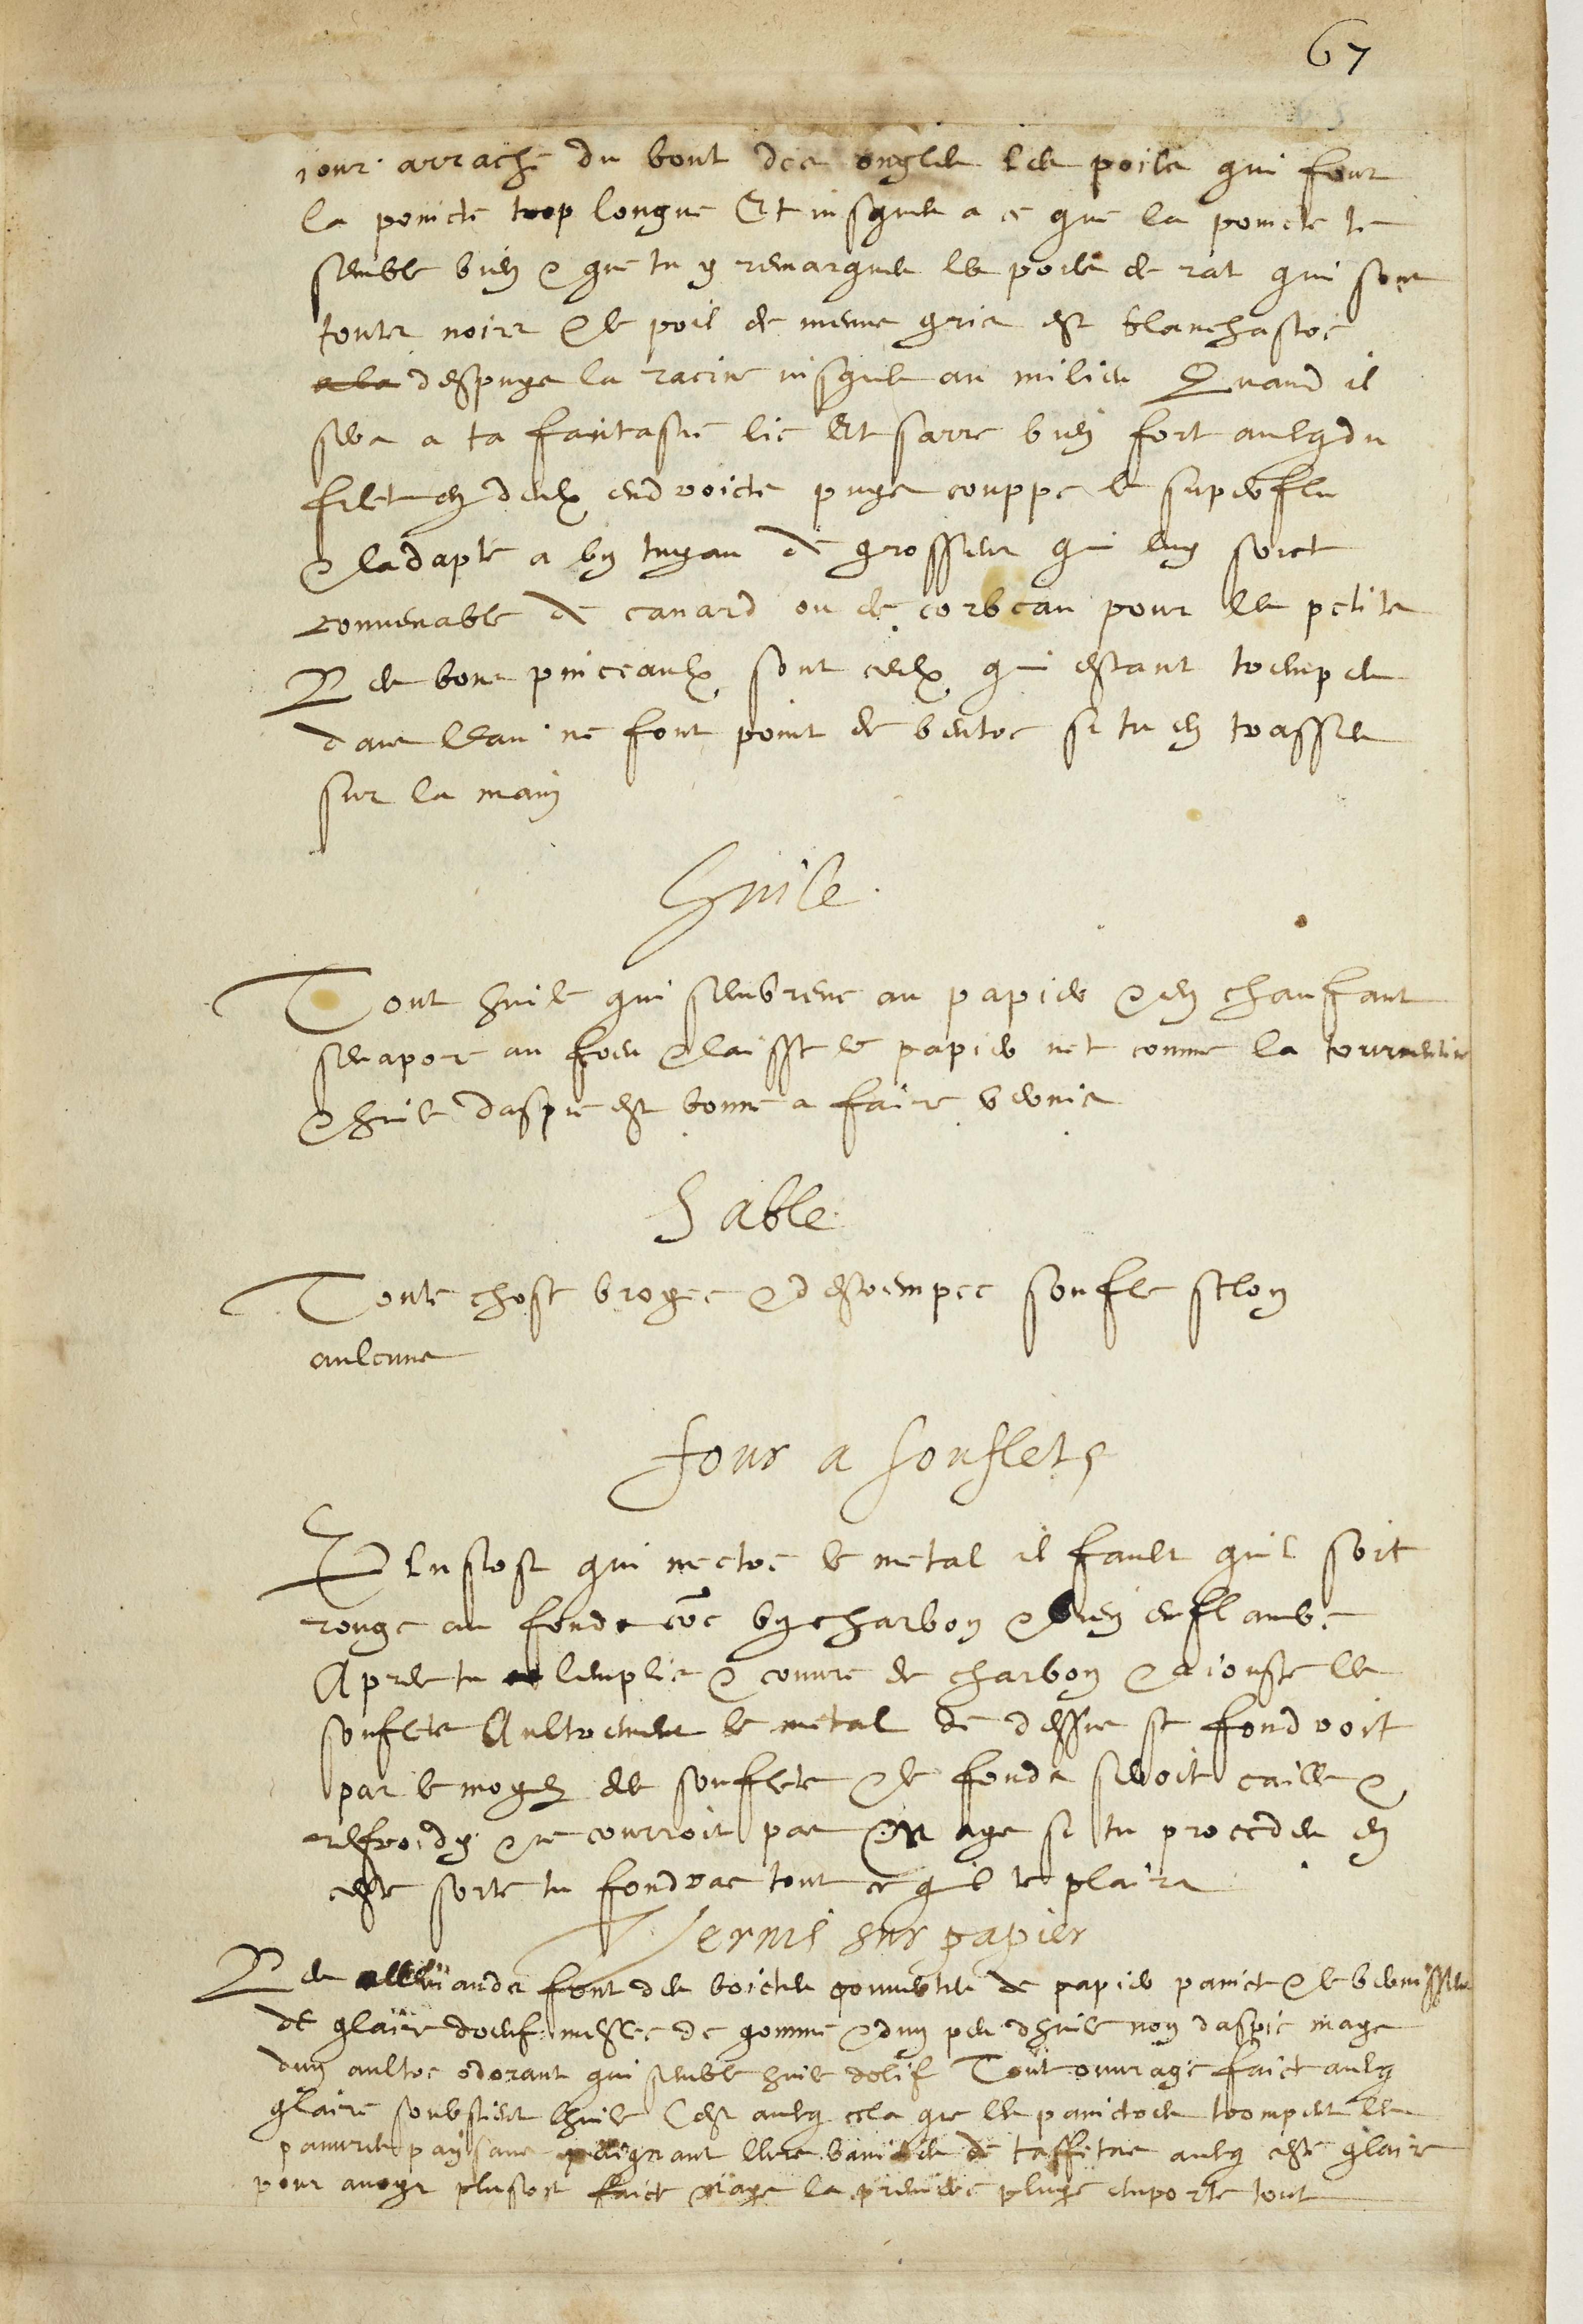 67
iour arrache du bout des ongles les poils qui font
la poincte trop longue Et iusques a ce que la poincte te
semble bien & que tu y remarques les poils de rat qui sont
touts noirs & le poil de menu gris est blanchastre
a la despuys la racine iusques au milieu Quand il
sera a ta fantasie lie Et sarre bien fort avecq du
filet en deulx endroicts puys couppe le superflu
& ladapte a un tuyau de grosseur qui luy soict
convenable de canard ou de corbeau pour les petits
Les bons pinceaulx sont ceulx qui estant trempes
dans leau ne font point de ventre si tu en trasses
sur la main
Huile
Tout huile qui sembreue au papier & en chaufant
sevapore au foeu & laisse le papier net comme la tourmentine
& huile daspic est bonne a faire vernis
Sable
Toute chose broyee & destrempee soufle selon
aulcuns
Four a souflets
Plustost qui mectre le metal il fault quil soit
rouge au fonds co{mm}e un charbon & bien enflambe
Apres tu lemplis & couvre de charbon & adiouste les
souflets Aultrement le metal de dessus se fondroit
par le moyen des souflets & le fonds seroit caille &
refroidy & ne courroit pas Mays si tu procedes en
ceste sorte tu fondras tout ce quil te plaira
Vernis sur papier
Les Allemands font des boictes couvertes de papier painct & le vernissent
de glaire doeuf meslee de gomme & dun peu dhuile non daspic mays
dun aultre odorant qui semble huile dolif Tout ouvrage faict avecq
glaire soubstient lhuile Cest avecq cela que les painctres trompent les
pauvres paysans peignant leurs banieres de taffetas avecq ceste glaire
pour avoyr plustost faict mays la premiere pluye emporte tout